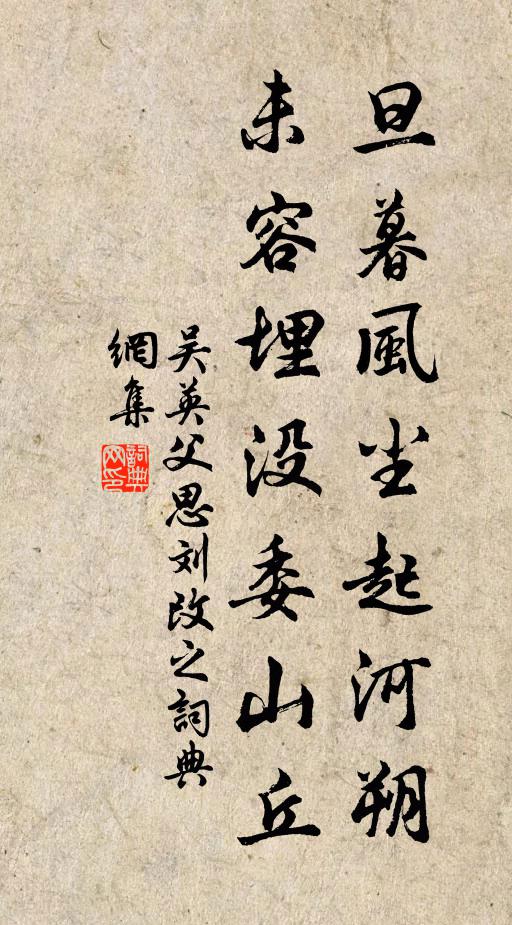 旦暮風尘起河朔
未容埋没委山丘
吴英父思刘改之詞典
網集
詞典
网印